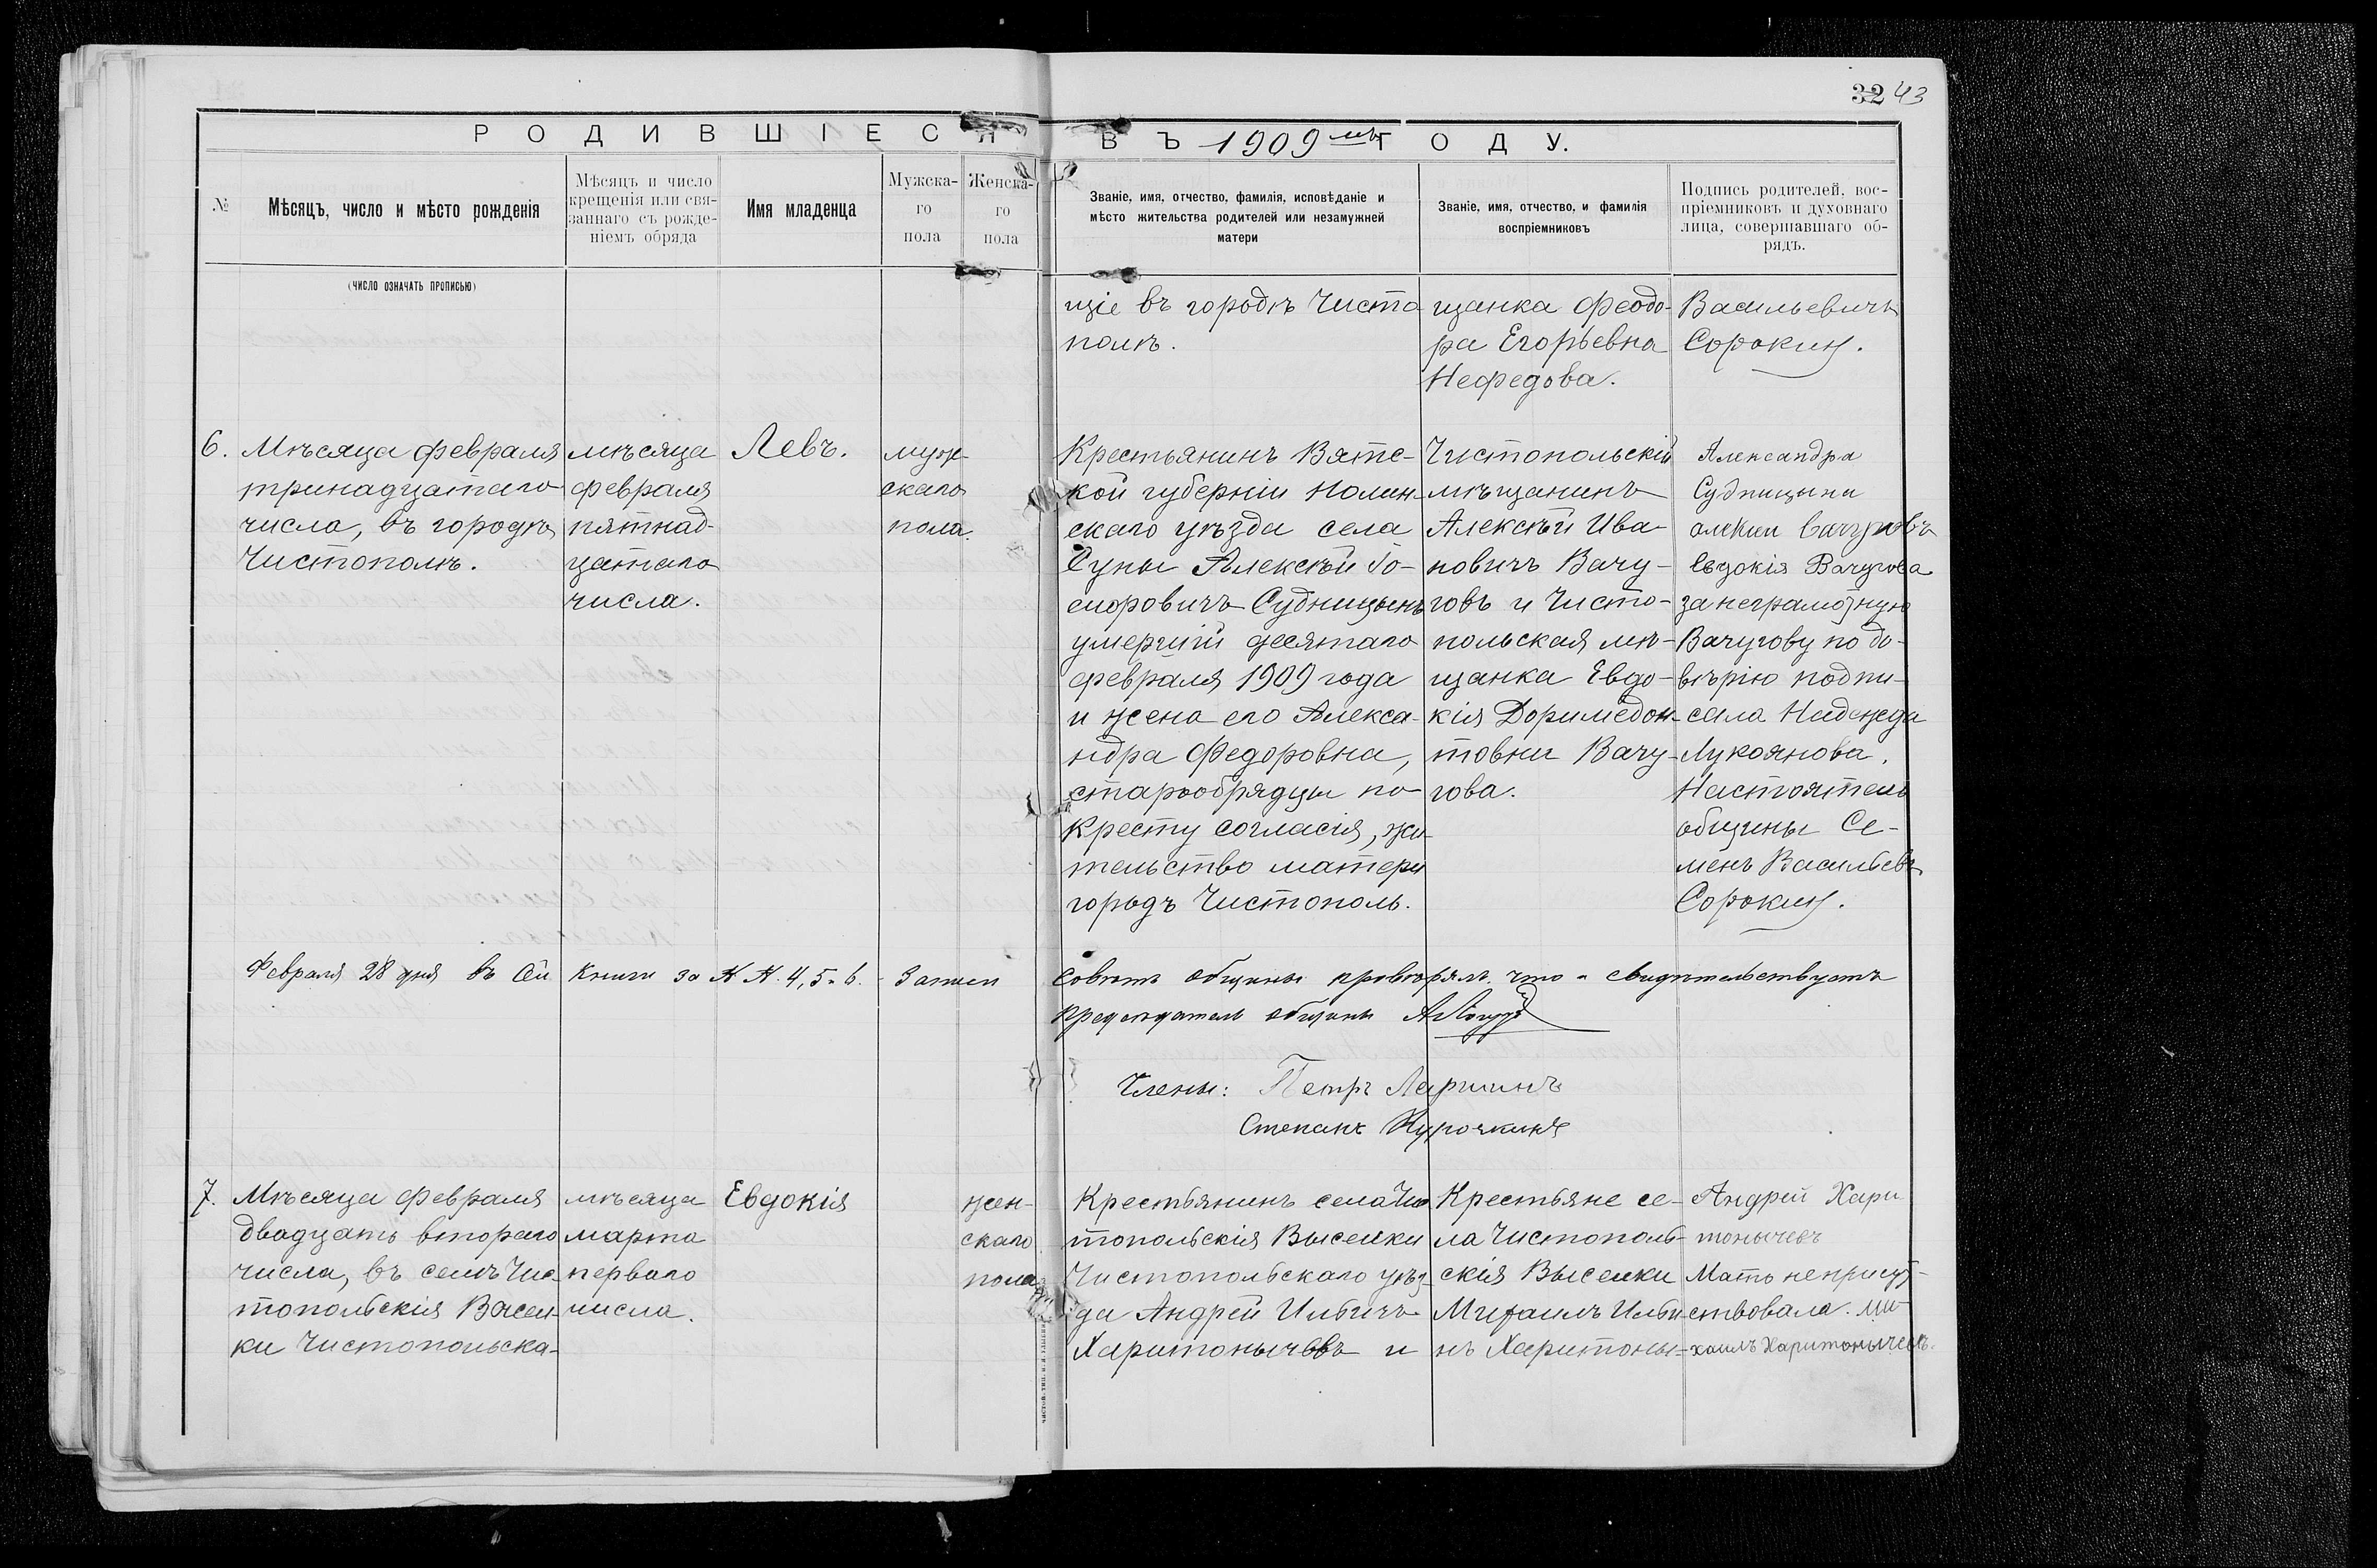 32 43
РОДИВШІЕСЯ ВЪ 1909 мъ ГОДУ.
№
Мѣсяцъ, число и мѣсто рожденія
Мѣсяцъ и число
крещенія или свя-
заннаго съ рожде-
ніемъ обряда
Имя младенца
Мужска-
го
пола
Женска-
го
пола
Званіе, имя, отчество, фамилія, исповѣданіе и
мѣсто жительства родителей или незамужней
матери
Званіе, имя, отчество, и фамилія
воспріемниковъ
Подпись родителей, вос-
пріемниковъ и духовнаго
лица, совершавшаго об-
рядъ.
(ЧИСЛО ОЗНАЧАТЬ ПРОПИСЬЮ)
щіе въ городѣ Чисто
полѣ.
щанка Феодо-
ра Егорьевна
Нефедова.
Васильевичъ
Сорокин.
6.
Мѣсяца февраля
тринадцатаго
числа, въ городѣ
Чистополѣ.
мѣсяца
февраля
пятнад-
цатаго
числа.
Левъ.
муж-
скаго
пола.
Крестьянинъ Вятс-
кой губерніи Нолин-
скаго уѣзда села
Суны Алексѣй
Судницынъ
умершій десятаго
февраля 1909 года
и жена его Алекса-
ндра Федоровна,
старообрядцы по
Кресту согласія, жи-
тельство матери
городъ Чистополь.
Чистопольскій
мѣщанинъ
Алексѣй Ива-
новичъ Вачу-
говъ и Чисто-
польская мѣ-
щанка Евдо-
кія Доримедон-
товна Вачу-
гова.
Александра
Судницына
Вачуговъ
Евдокія Вачугова
за неграмотную
Вачугову по до-
вѣрію подпи-
сала Надежда
Лукоянова.
Настоятель
общины Се-
менъ Васильевъ
Сорокин.
Февраля 28 дня въ сей книги за № № 4, 5 и 6. записи Совѣтъ общины провѣрялъ что и свидѣтельствуетъ
Предсѣдатель общины
Члены: Петръ Ларшинъ
Степанъ Курочкинъ
7.
Мѣсяца февраля
двадцать второго
числа, въ селѣ Чис
топольскія Высел-
ки Чистопольска-
мѣсяца
марта
перваго
числа.
Евдокія
жен-
скаго
пола
Крестьянинъ села Чис
топольскія Выселки
Чистопольскаго уѣз-
да Андрей Ильичъ
Харитонычевъ и
Крестьяне се-
ла Чистополь-
скія Выселки
Михаилъ Ильи-
нъ Харитоны-
Андрей Хари
тонычевъ
Мать неприсут-
ствовала. Ми-
хаилъ Харитонычевъ.